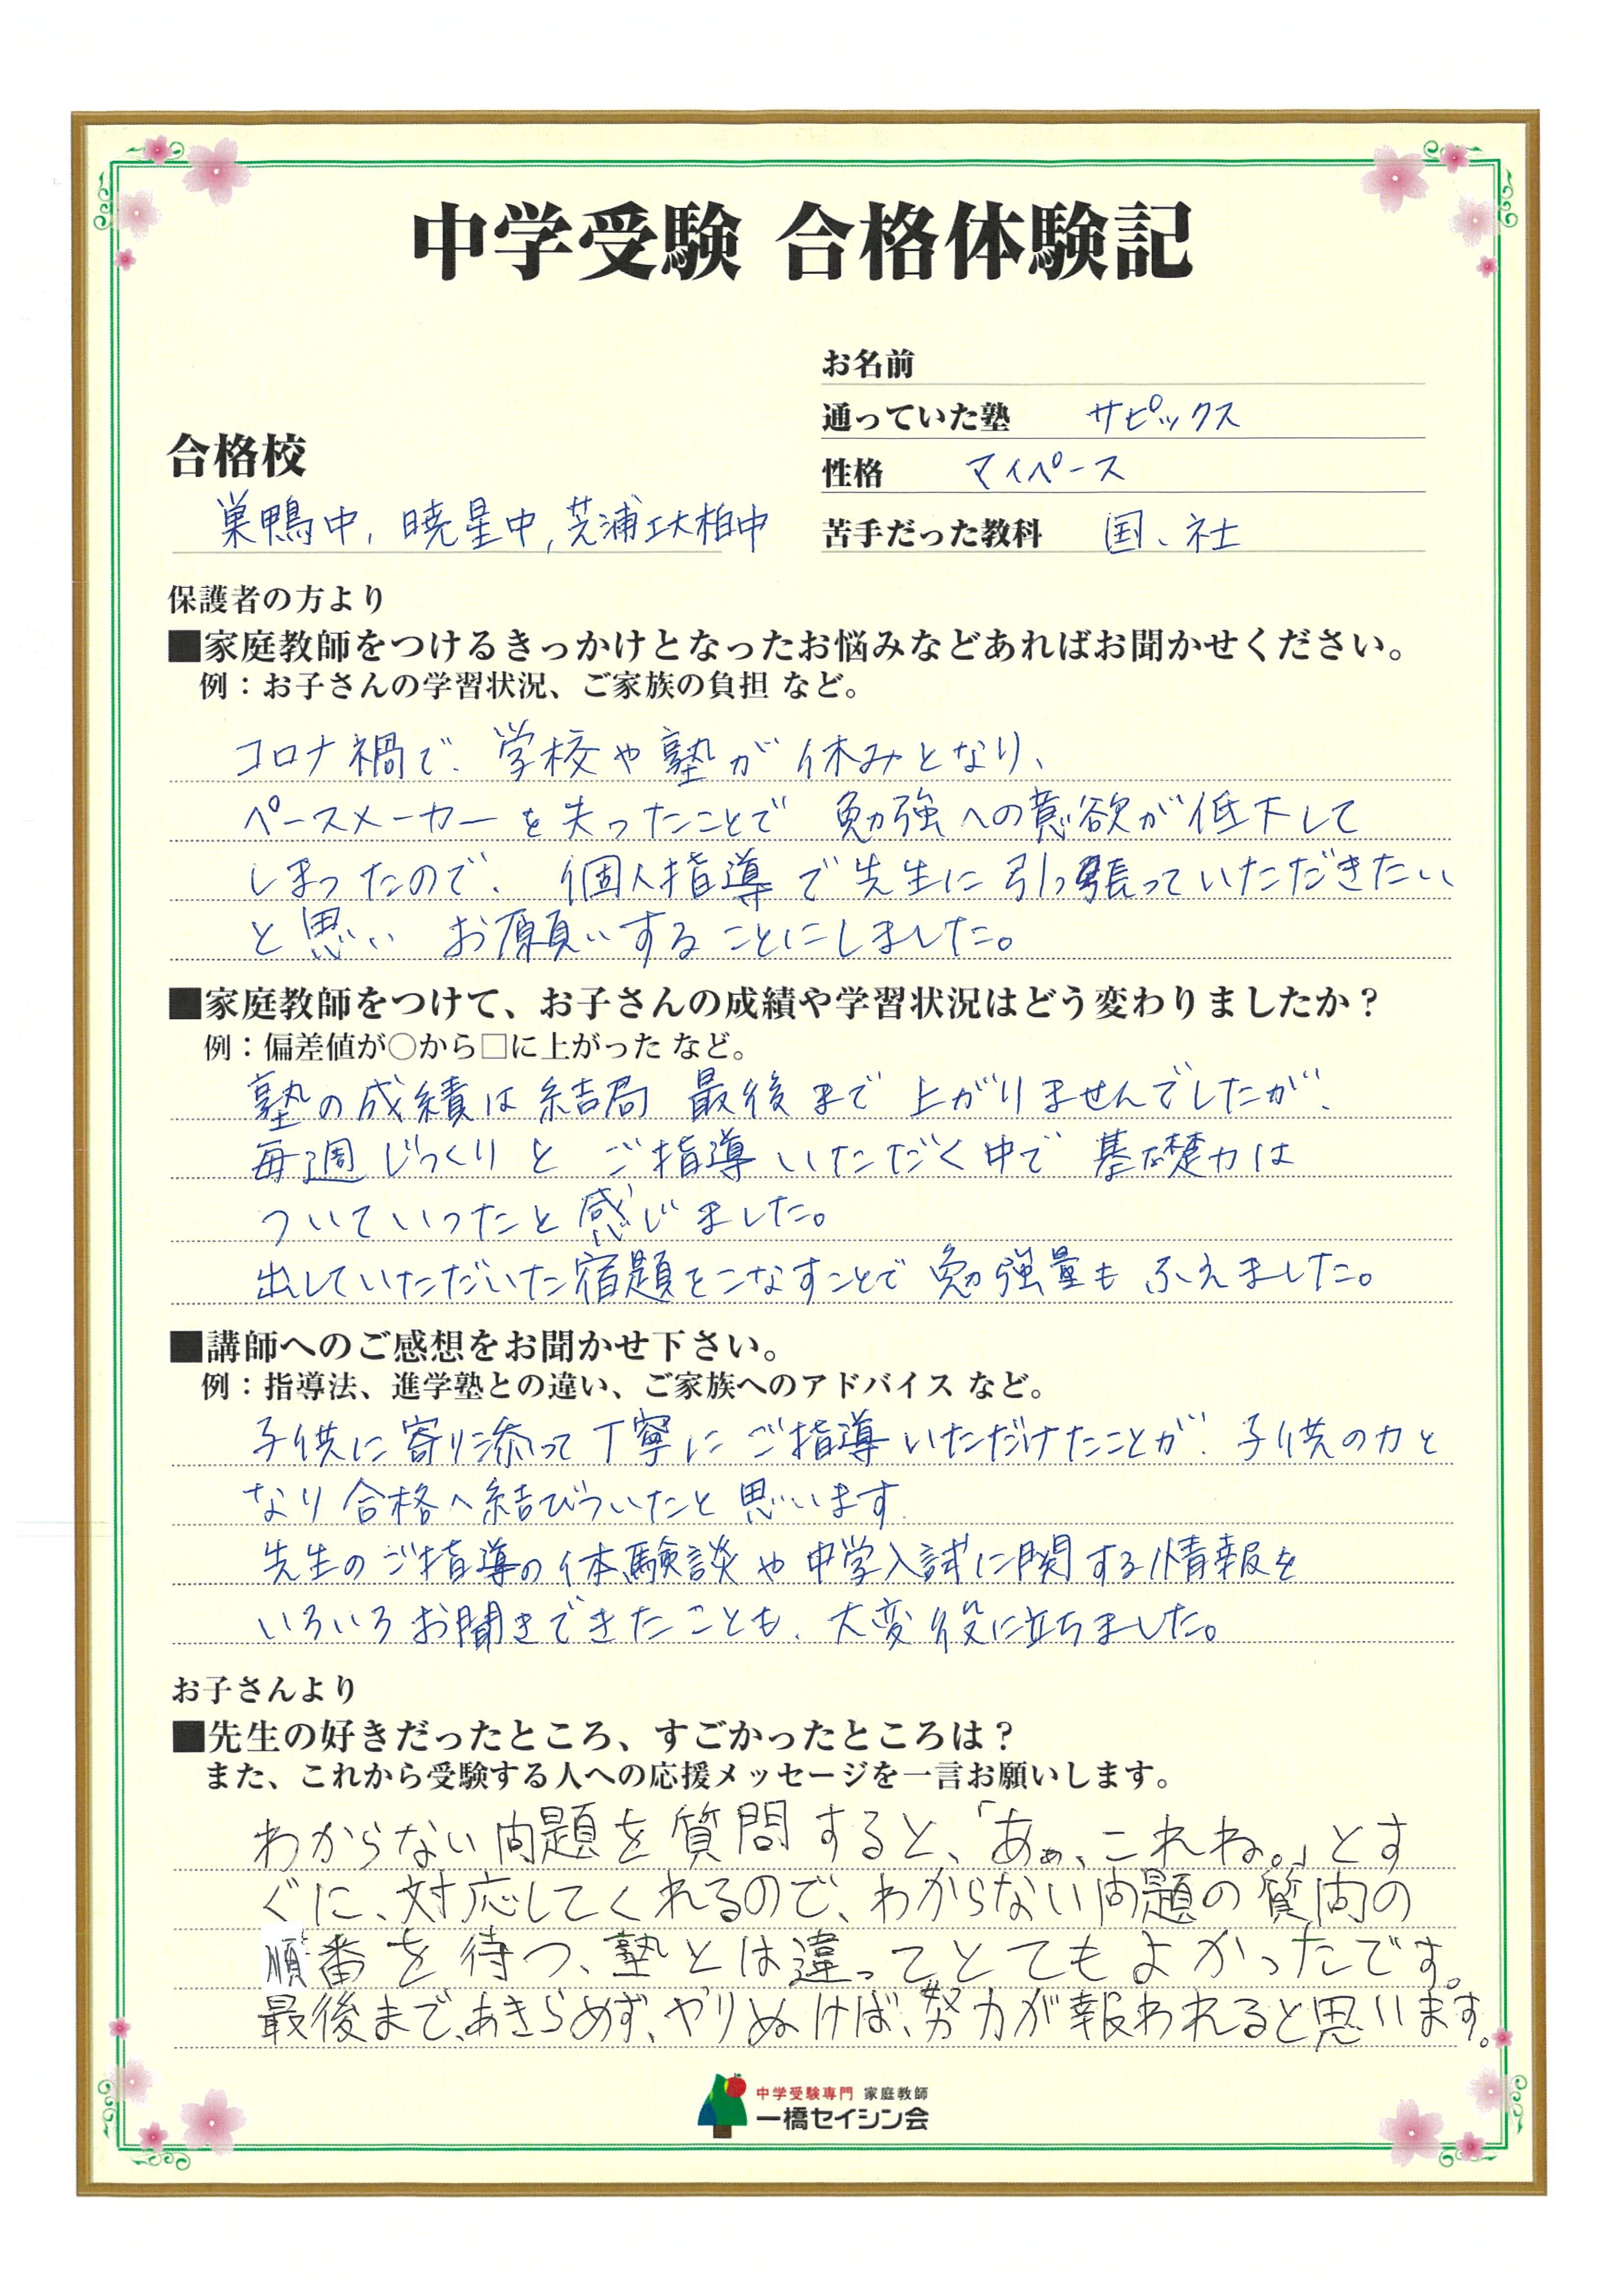 中学受験 合格体験記
お名前
通っていた塾 サピックス
合格校
性格 マイペース
巣鴨中, 暁星中, 芝浦工大柏中
苦手だった教科 国、社
保護者の方より
■家庭教師をつけるきっかけとなったお悩みなどあればお聞かせください。
例：お子さんの学習状況、ご家族の負担 など。
コロナ禍で、学校や塾が休みとなり、
ペースメーカーを失ったことで 勉強への意欲が低下して
しまったので、個人指導で先生に引っ張っていただきたい
と思い お願いすることにしました。
■家庭教師をつけて、お子さんの成績や学習状況はどう変わりましたか？
例：偏差値が○から□に上がった など。
塾の成績は結局 最後まで上がりませんでしたが、
毎週じっくりと ご指導いただく中で 基礎力は
ついていったと感じました。
出していただいた宿題をこなすことで勉強量も ふえました。
■講師へのご感想をお聞かせ下さい。
例：指導法、進学塾との違い、ご家族へのアドバイス など。
子供に寄り添って丁寧に ご指導いただけたことが、子供の力と
なり合格へ結びついたと思います.
先生のご指導の体験談や中学入試に関する情報を
いろいろお聞きできたことも、大変役に立ちました。
お子さんより
■先生の好きだったところ、すごかったところは？
また、これから受験する人への応援メッセージを一言お願いします。
わからない問題を質問すると、「あぁ、これね。」とす
ぐに、対応してくれるので、わからない問題の質問の
順番を待つ、塾とは違ってとてもよかったです。
最後まで、あきらめず、やりぬけば、努力が報われると思います。
中学受験専門 家庭教師
一橋セイシン会